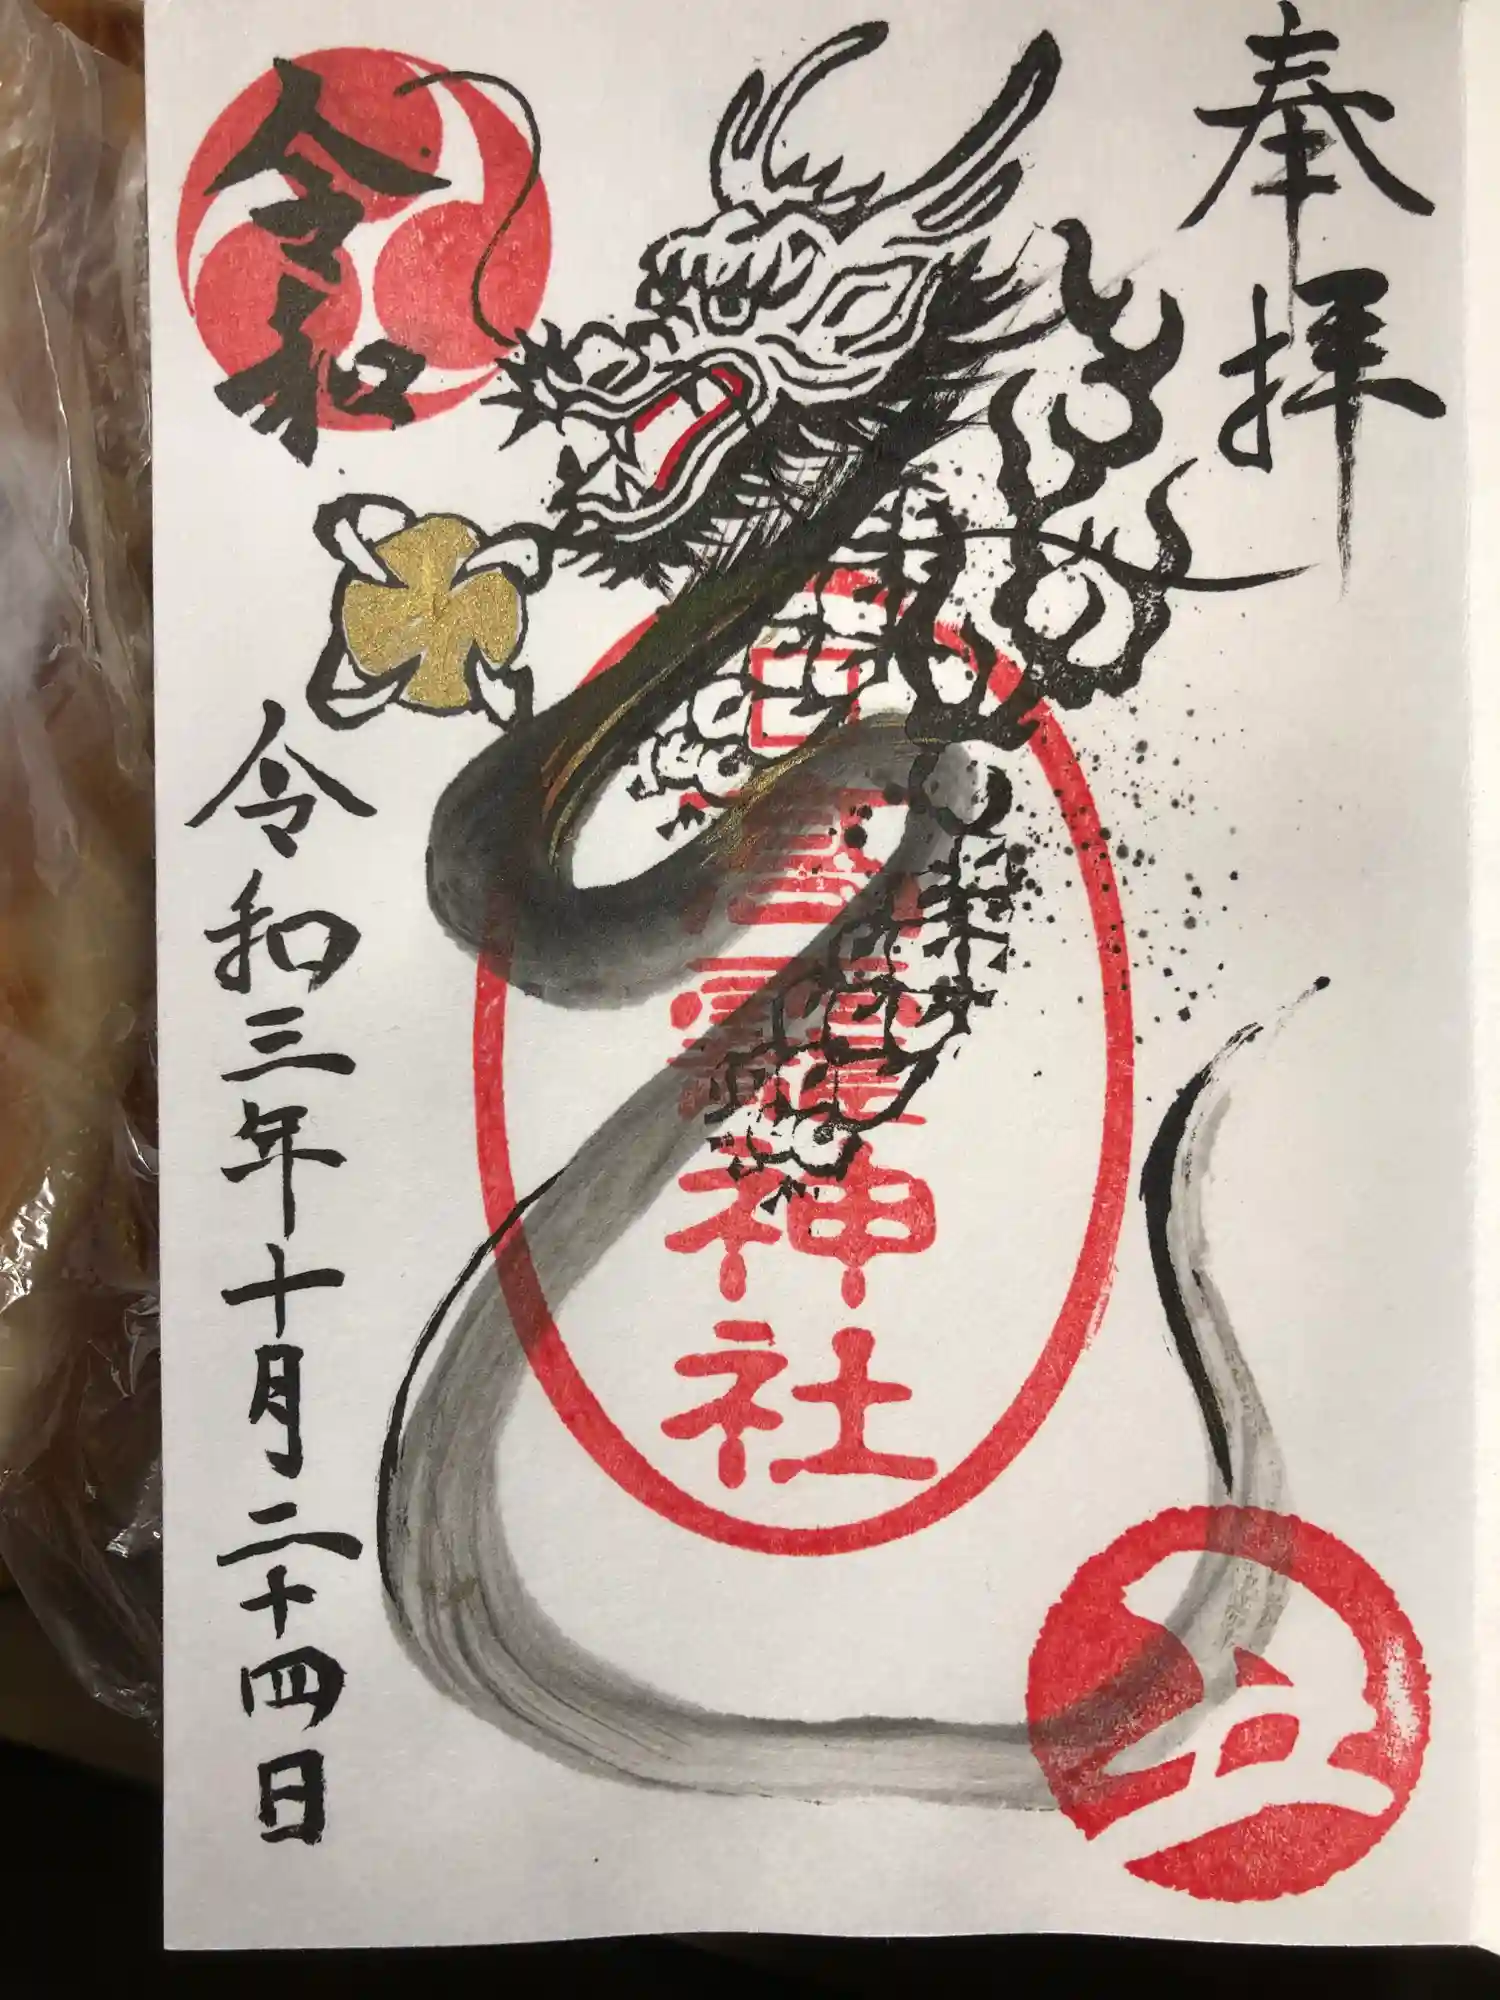 奉拝
神社
令和
令和三年十月二十四日
丑